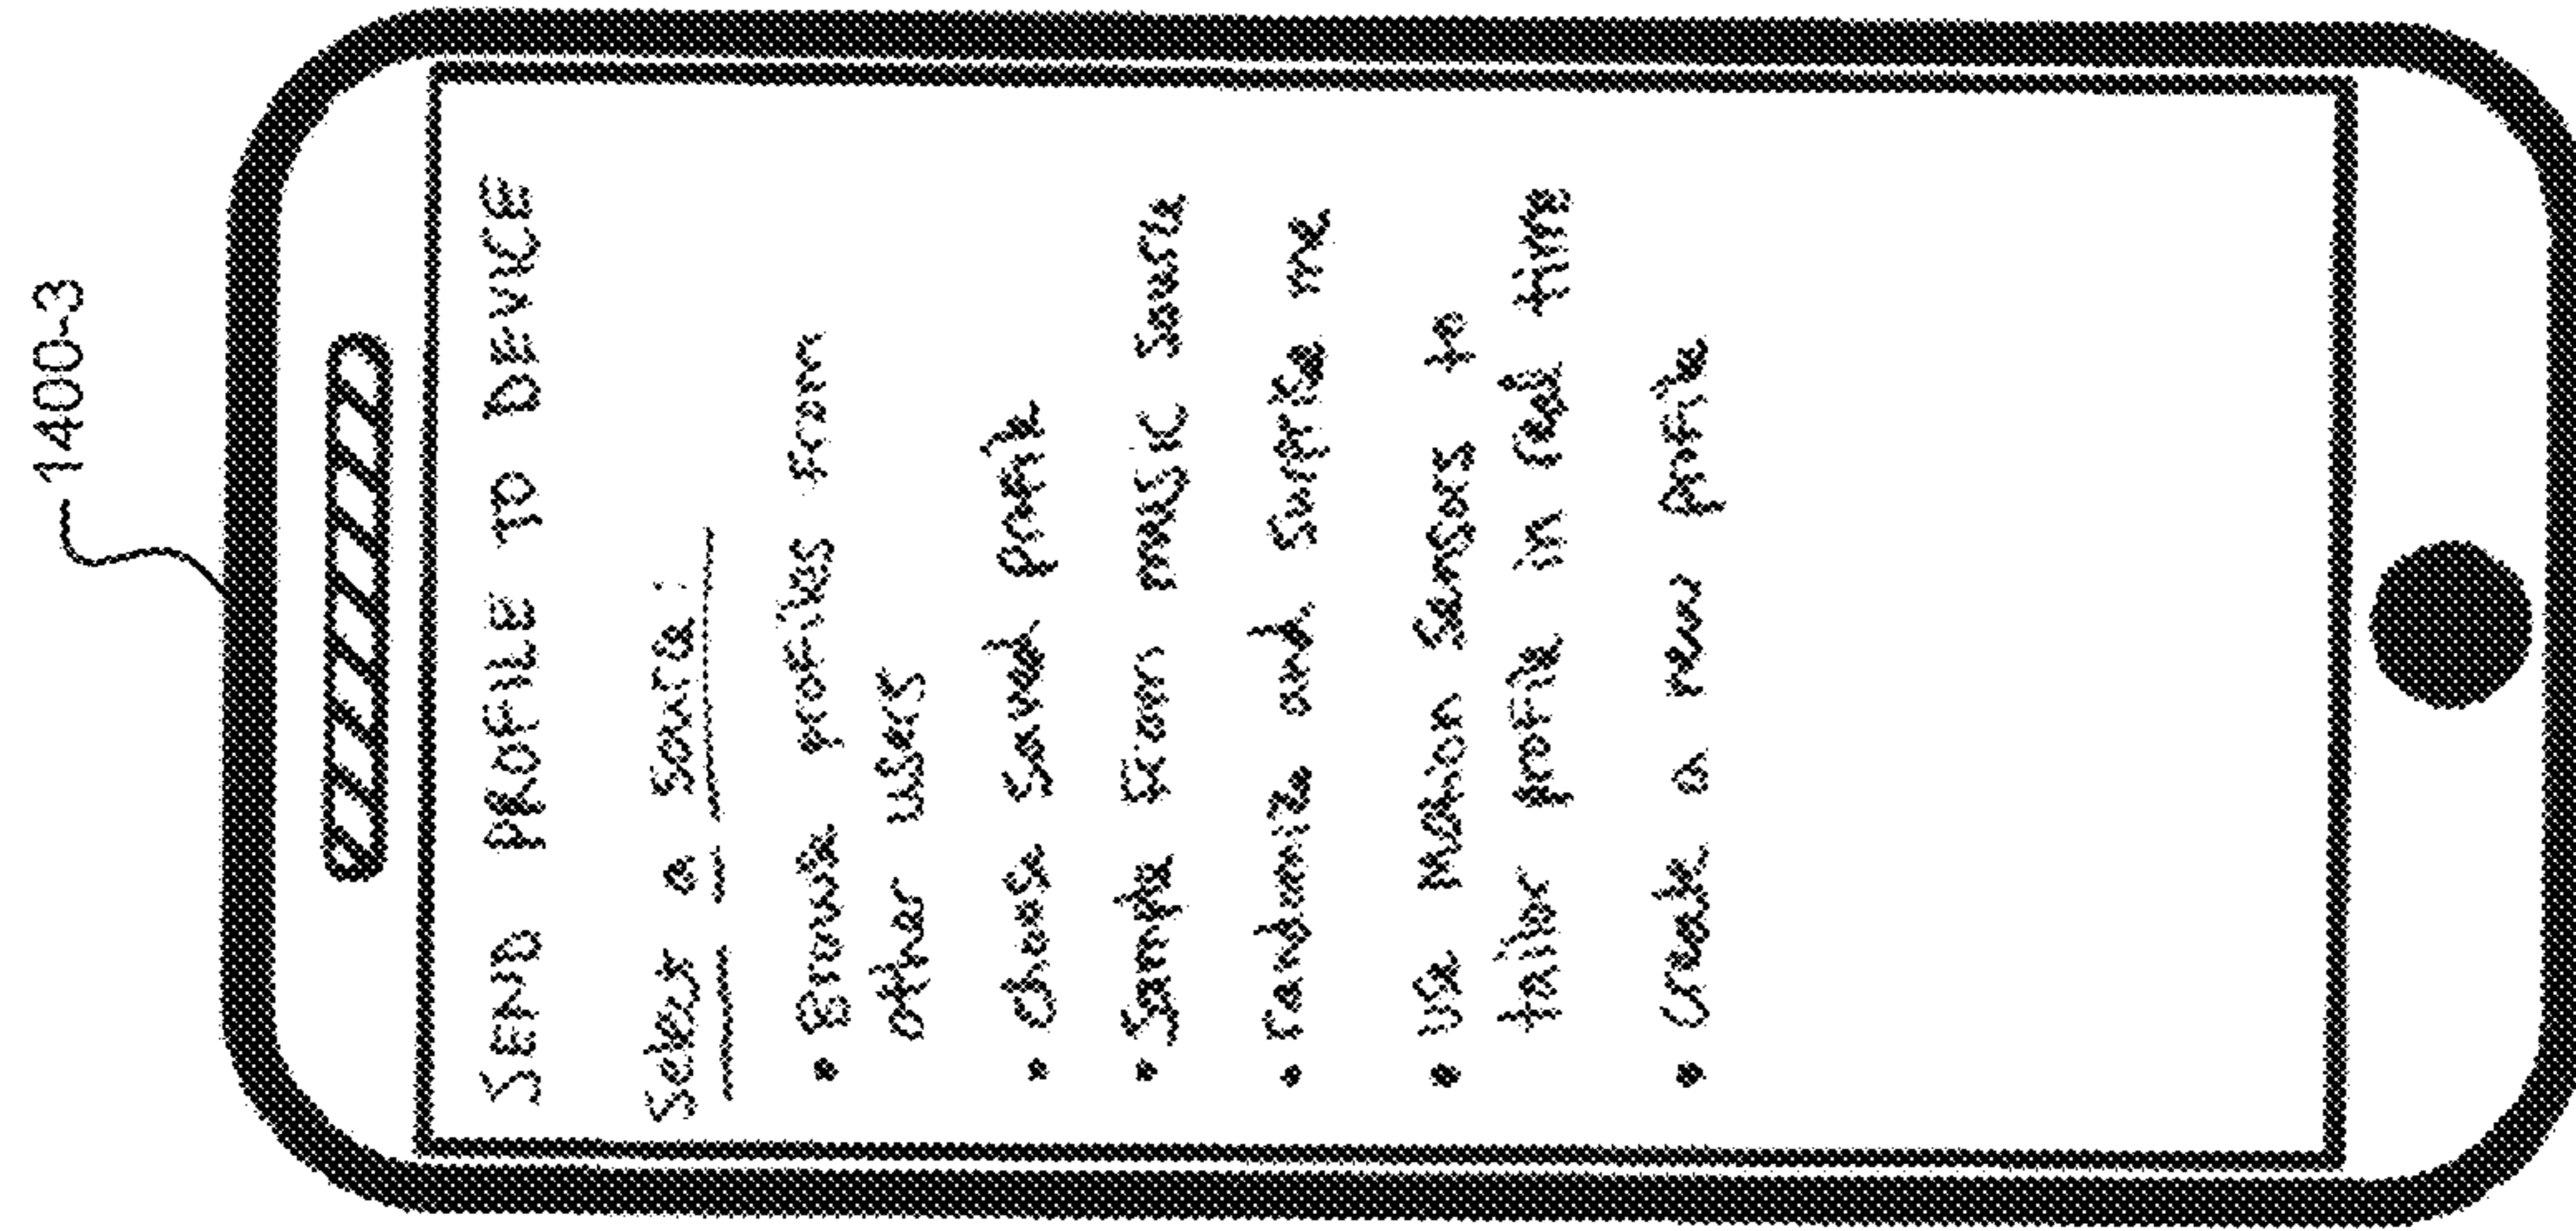 1400-3
SEND PROFILE TO DEVICE
Select a source:
• Browse profiles from
other users
• choose saved profile
• Sample from music source
• randomize and surprise me
• use motion sensors to
tailor profile in real time
• create a new profile